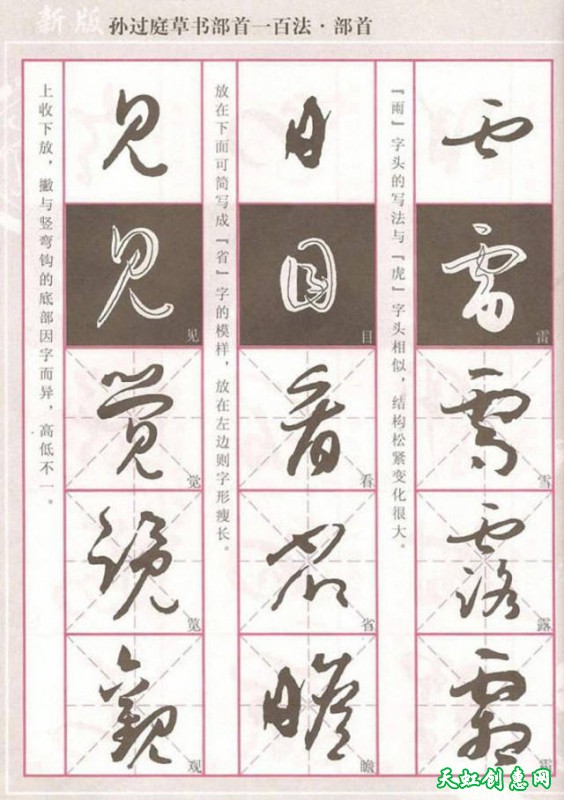 新版 孙过庭草书部首一百法·部首
雷
雪
露
『雨』字头的写法与『虎』字头相似，结构松紧变化很大。
目
看
省
瞻
放在下面可简写成『省』字的模样，放在左边则字形瘦长。
见
觉
览
观
上收下放，撇与竖弯钩的底部因字而异，高低不一。
天虹创惠网